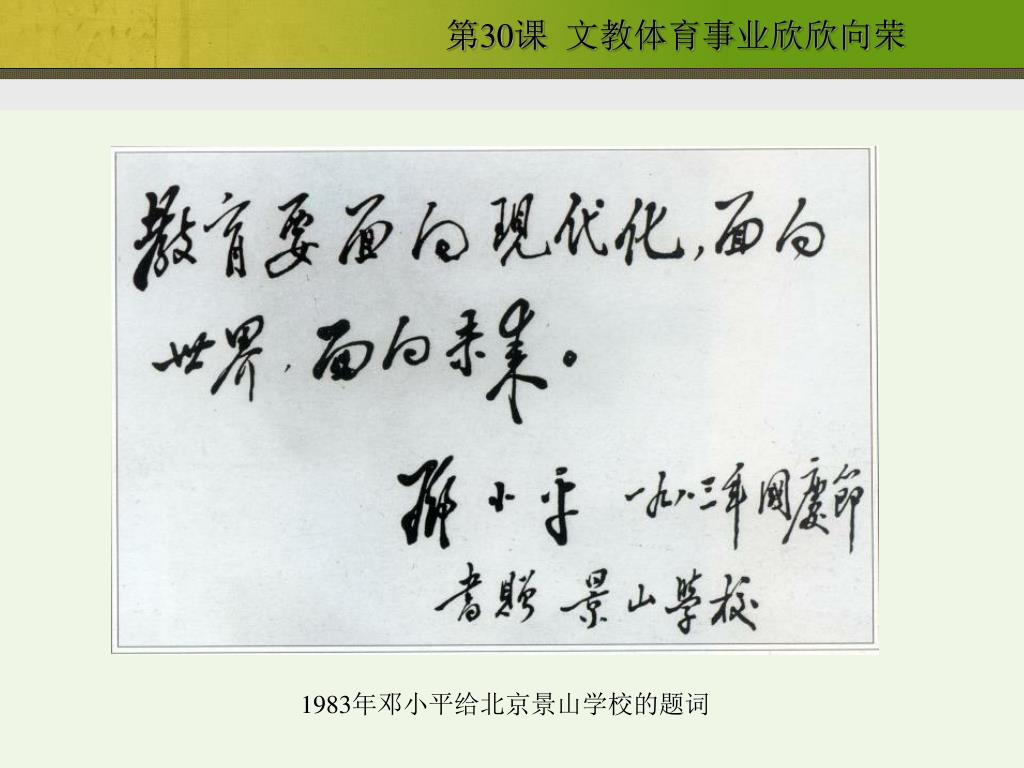 第30课 文教体育事业欣欣向荣
教育要面向現代化,面向
世界,面向未来。
鄧小平 一九八三年國慶節
書贈 景山學校
1983年邓小平给北京景山学校的题词